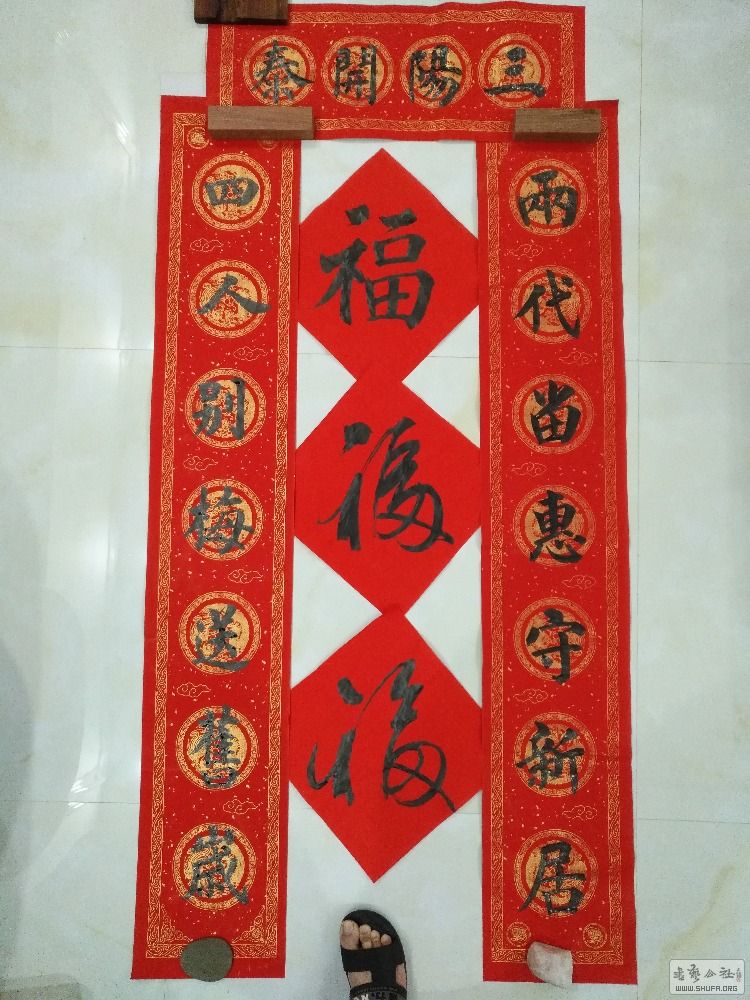 三陽開泰
兩代當惠守新居
四人别梅送舊歲
福
福
福
書藝公社
WWW.SHUFA.ORG